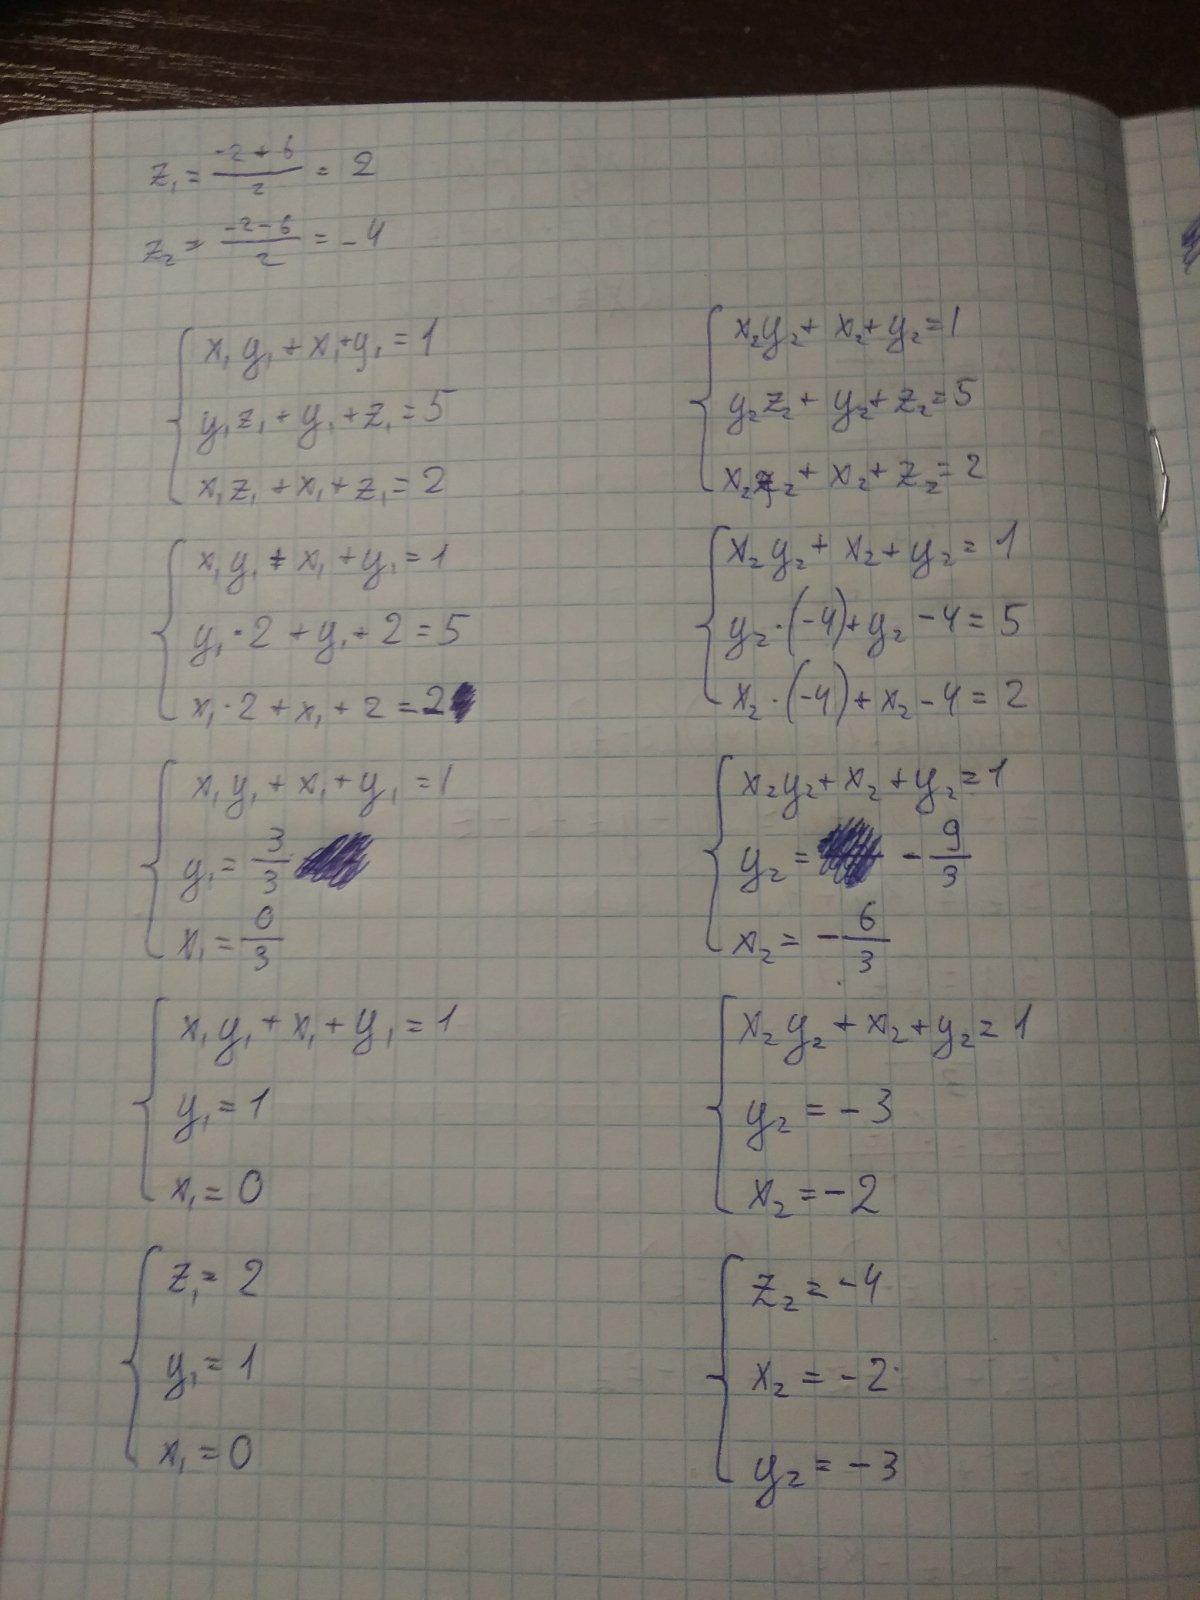 z₁ = (-2+6)/2 = 2
z₂ = (-2-6)/2 = -4
x₁y₁ + x₁ + y₁ = 1
y₁z₁ + y₁ + z₁ = 5
x₁z₁ + x₁ + z₁ = 2
x₁y₁ + x₁ + y₁ = 1
y₁·2 + y₁ + 2 = 5
x₁·2 + x₁ + 2 = 2
x₁y₁ + x₁ + y₁ = 1
y₁ = 3/3
x₁ = 0/3
x₁y₁ + x₁ + y₁ = 1
y₁ = 1
x₁ = 0
z₁ = 2
y₁ = 1
x₁ = 0
x₂y₂ + x₂ + y₂ = 1
y₂z₂ + y₂ + z₂ = 5
x₂z₂ + x₂ + z₂ = 2
x₂y₂ + x₂ + y₂ = 1
y₂·(-4) + y₂ - 4 = 5
x₂·(-4) + x₂ - 4 = 2
x₂y₂ + x₂ + y₂ = 1
y₂ = -9/3
x₂ = -6/3
x₂y₂ + x₂ + y₂ = 1
y₂ = -3
x₂ = -2
z₂ = -4
x₂ = -2
y₂ = -3